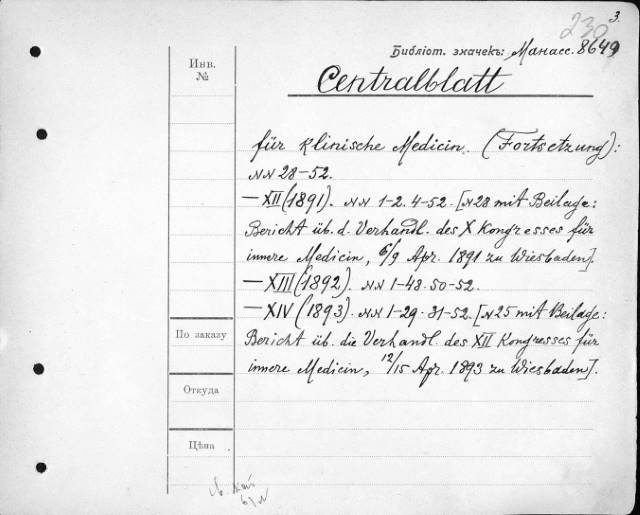 230
3.
Библіот. значекъ: Манасс. 8649
Инв.
№
Centralblatt
für klinische Medicin. (Fortsetzung):
NN 28-52.
— XII (1891). NN 1-2. 4-52. [N28 mit Beilage:
Bericht üb. d. Verhandl. des X Kongresses für
innere Medicin, 6/9 Apr. 1891 zu Wiesbaden].
— XIII (1892). NN 1-48. 50-52.
— XIV (1893). NN 1-29. 31-52. [N25 mit Beilage:
По заказу
Bericht üb. die Verhandl. des XII Kongresses für
innere Medicin, 12/15 Apr. 1893 zu Wiesbaden].
Откуда
Цѣна